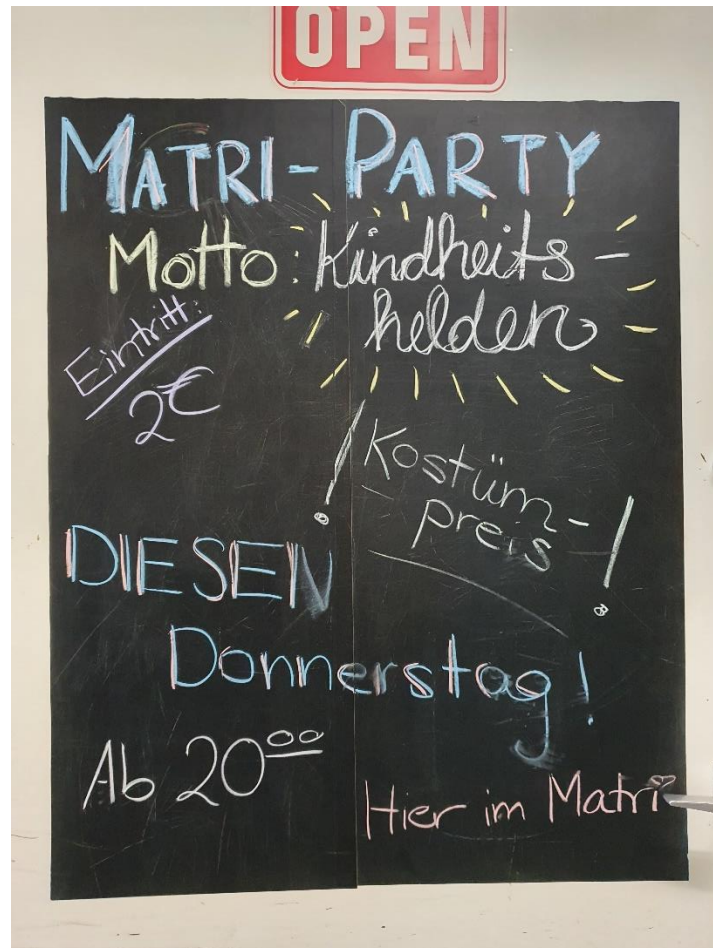 OPEN
MATRI-PARTY
Motto: Kindheits-
helden
Eintritt:
2€
! Kostüm-
preis !
DIESEN
Donnerstag!
Ab 20⁰⁰
Hier im Matri